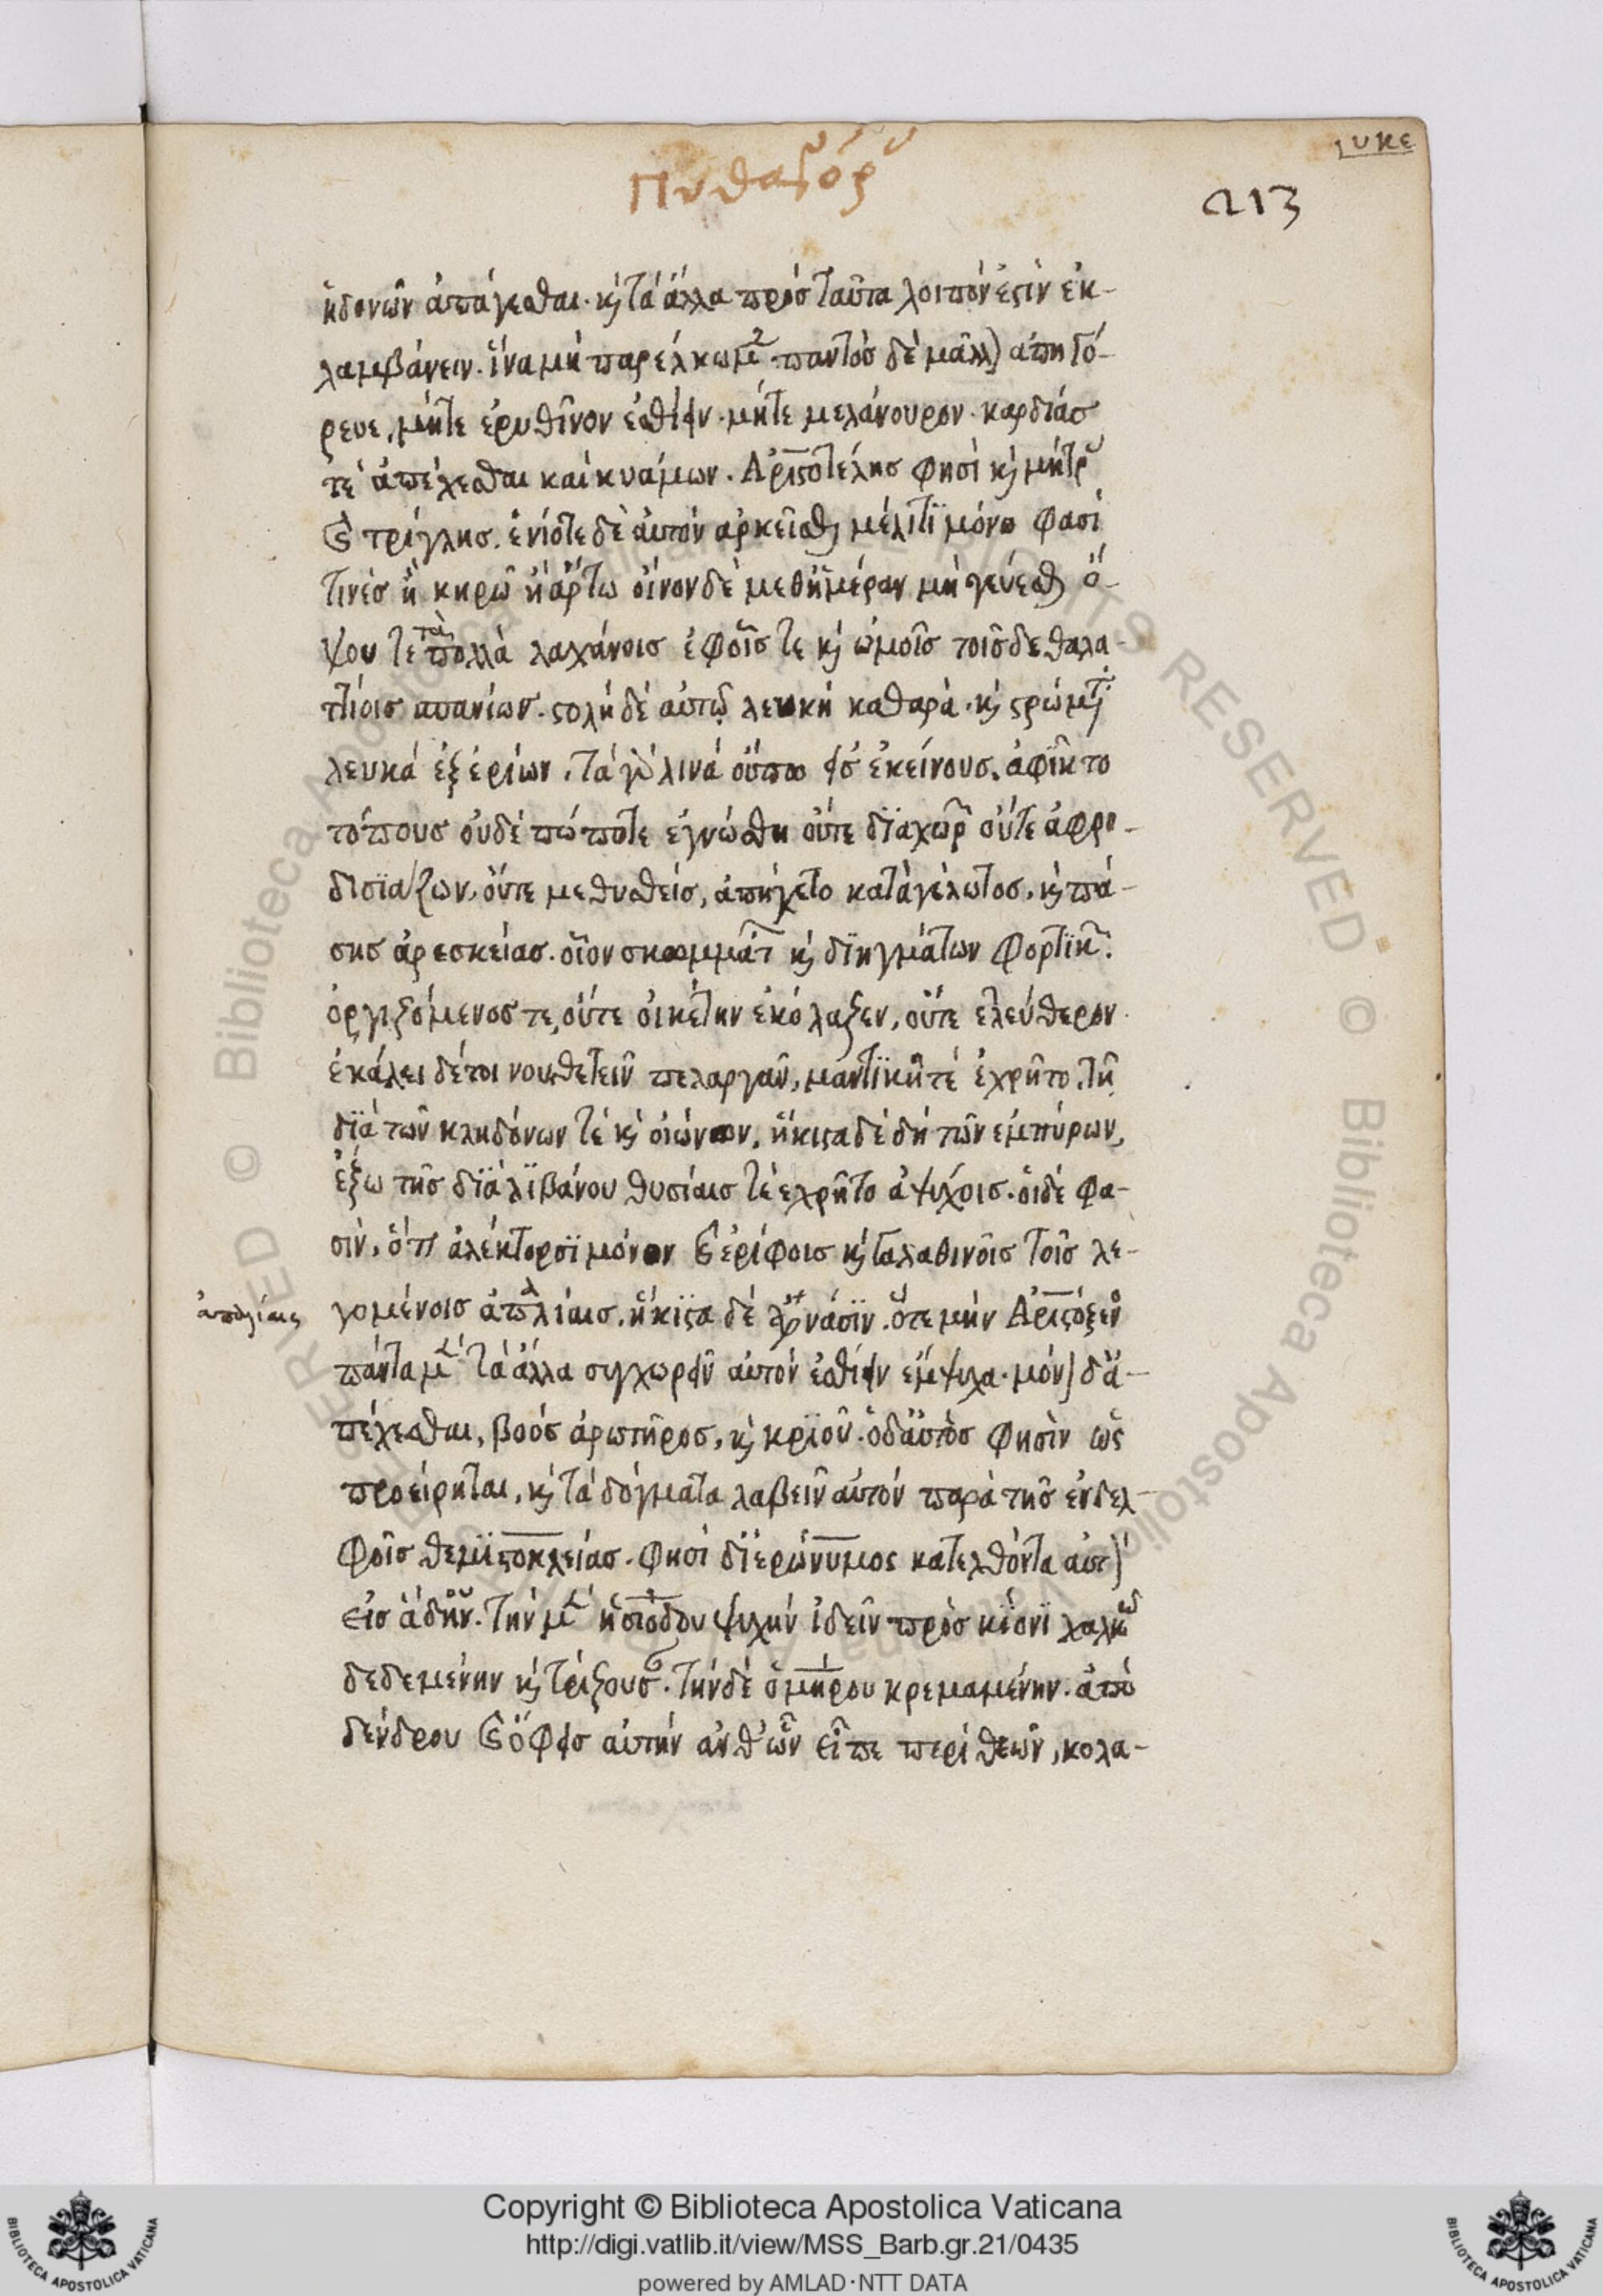 LUKE
Πυθαγόρου
213
ἡδονῶν ἀπάγεσθαι. κ̀ τὰ ἄλλα πρὸσ ταῦτα λοιπὸν ἐϛὶν ἐκ-
λαμβάνειν. ἵνα μὴ παρέλκωμεν παντὸσ δὲ μᾶλλον ἀπηγό-
ρευε, μήτε ἐρυθῖνον ἐσθίειν. μήτε μελάνουρον. καρδίασ
τὲ ἀπέχεσθαι καὶ κυάμων. Ἀριϛοτέλησ φησὶ κ̀ μήτρου
κ̀ τρίγλησ. ἐνίοτε δὲ ἀυτὸν ἀρκεῖσθαι μέλιτϊ μόνω φασί
τινὲσ ἢ κηρῶ ἢ ἄρτω οἴνον δὲ μεθἡμέραν μὴ γεύεσθαι ὄ-
ψου τε τὰ πολλὰ λαχάνοισ ἐφοῖσ τε κ̀ ὠμοῖσ τοῖσ δε θαλα-
ττίοισ σπανίωσ. ϛολὴ δὲ ἀυτῶ λευκὴ καθαρὰ. κ̀ ϛρώματα
λευκὰ ἐξ ἐρίων. τὰ γὰρ λινὰ οὔπω εἰσ ἐκείνουσ. ἀφῖκτο
τόπουσ οὐδὲ πώποτε ἐγνώσθη οὔτε δϊαχωρῶν οὔτε ἀφρο-
δισϊάζων, οὔτε μεθυσθείσ, ἀπήχετο κατὰγέλωτοσ, κ̀ πά-
σησ ἀρεσκείασ. οἷον σκωμμάτων κ̀ δϊηγμάτων φορτϊκῶν.
ὀργιζόμενοσ τε, οὔτε οἰκέτην ἐκόλαζεν, οὔτε ἐλεύθερον
ἐκάλει δέτοι νουθετεῖν πελαργᾶν, μαντϊκῆ τὲ ἐχρῆτο, τῆ
δϊὰ τῶν κληδόνων τὲ κ̀ οἰώνων. ἥκιϛα δὲ δὴ τῶν ἐμπύρων,
ἔξω τῆσ δϊὰ λϊβάνου θυσίαισ τὲ ἐχρῆτο ἀψύχοισ. ὁιδέ φα-
σὶν, ὅτι ἀλέκτορσϊ μόνον κ̀ ἐρίφοισ κ̀ γαλαθινοῖσ τοῖσ λε-
ἁπαλίαις
γομένοισ ἁπαλίαισ. ἥκϊϛα δὲ ἀρνάσϊν. ὅτε μὴν Ἀριϛόξενος
πάντα μὲν τὰ ἄλλα συγχωρεῖν αὐτὸν ἐσθίειν ἔμψυχα. μόνον δ'ἀ-
πέχεσθαι, βοὸσ ἀροτῆροσ, κ̀ κρϊοῦ. ὁδ'ἀυτὸσ φησὶν ὡς
προείρηται, κ̀ τὰ δόγματα λαβεῖν αὐτὸν παρὰ τῆσ ἐνδελ-
φοῖσ θεμϊϛοκλείασ. φησὶ δ'ϊερώνυμος κατελθόντα αὐτὸν
εἰσ ἅδην. τὴν μὲν ἡσιόδου ψυχὴν ἰδεῖν πρὸσ κίονϊ χαλκῶ
δεδεμένην κ̀ τρίζουσαν. τὴν δὲ ὁμήρου κρεμαμένην. ἀπὸ
δένδρου κ̀ ὄφεισ ἀυτὴν ἀνθ'ὧν εἶπε περὶ θεῶν, κολα-
Copyright © Biblioteca Apostolica Vaticana
http://digi.vatlib.it/view/MSS_Barb.gr.21/0435
powered by AMLAD·NTT DATA